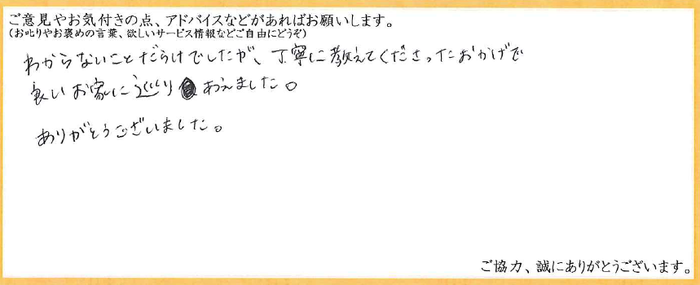 ご意見やお気付きの点、アドバイスなどがあればお願いします。
(お叱りやお褒めの言葉、欲しいサービス情報などご自由にどうぞ)
わからないことだらけでしたが、丁寧に教えてくださったおかげで
良いお家に巡りあえました。
ありがとうございました。
ご協力、誠にありがとうございます。